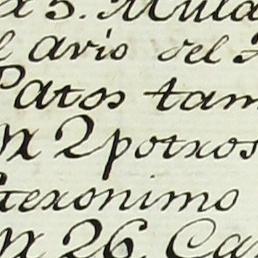 3. Mula
avio del
Patos tam
2 potros
teronimo
26. Ca